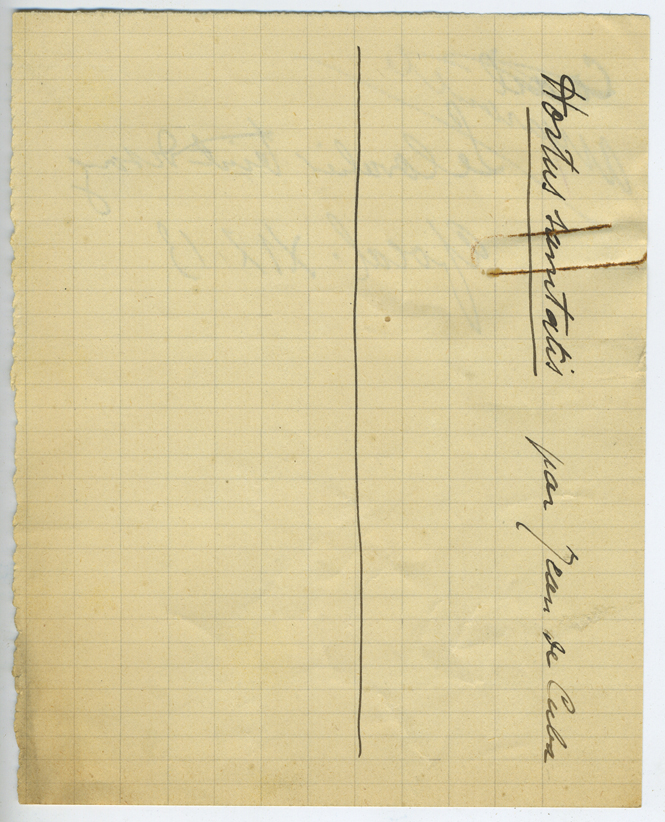 Hortus sanitatis par Jean de Cuba